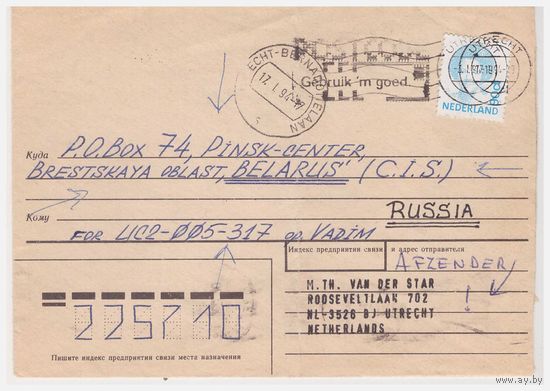 UTRECHT
ECHT-BERNADOTTELAAN
17.I.9
Gebruik 'm goed.
NEDERLAND
Куда P.O. Box 74, PINSK-CENTER,
BRESTSKAYA OBLAST, BELARUS" (C.I.S.)
RUSSIA
Кому
FOR UC2-ØØ5-317 op. VADIM
Индекс предприятия связи и адрес отправителя
AFZENDER
!
M.TH. VAN DER STAR
ROOSEVELTLAAN 702
NL-3526 BJ UTRECHT
NETHERLANDS
225710
Пишите индекс предприятия связи места назначения
www.ay.by